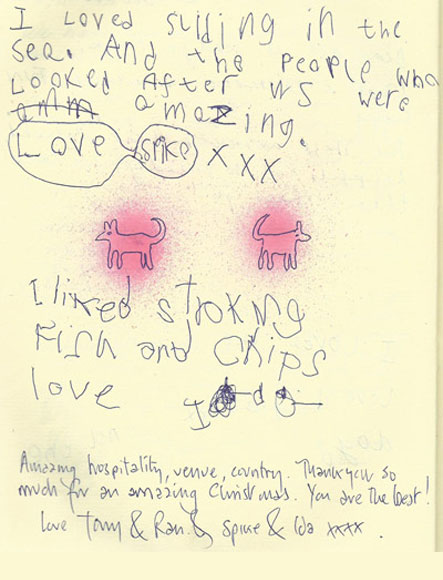 I loved sliding in the
sea. And the people who
looked After us were
amazing.
Love spike x xx
I liked stroking
Fish and Chips
love
Amazing hospitality, venue, country. Thank you so
much for an amazing Christmas. You are the best!
love Tony & Ran & Spike & Ida xxxx.